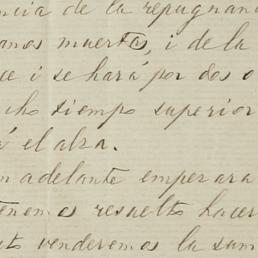 ncia de la repugnan
anos muertos, i de la
ce i se hará por dos o
cho tiempo superior
á el alza.
n adelante emperara
tenemos resuelto hacer
sto venderemos la sum